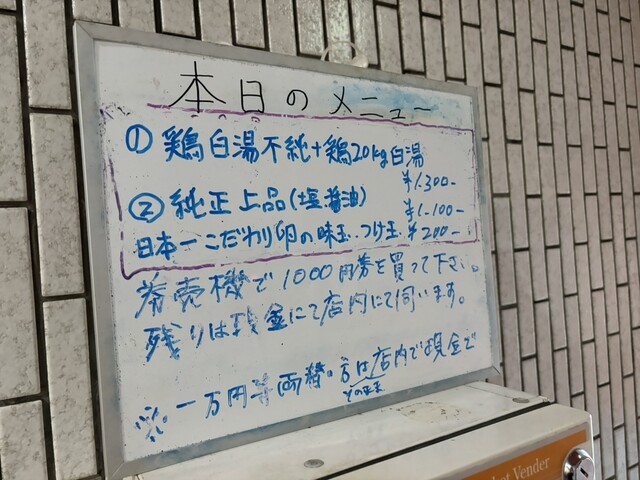 本日のメニュー
① 鶏白湯不純+鶏20kg白湯
¥1.300-
② 純正上品(塩醤油) ¥1.100-
日本一こだわり卵の味玉、つけ玉 ¥200-
券売機で1000円券を買って下さい。
残りは現金にて店内にて伺います。
※ 一万円 両替の方は店内で現金で
そのまま
Vender